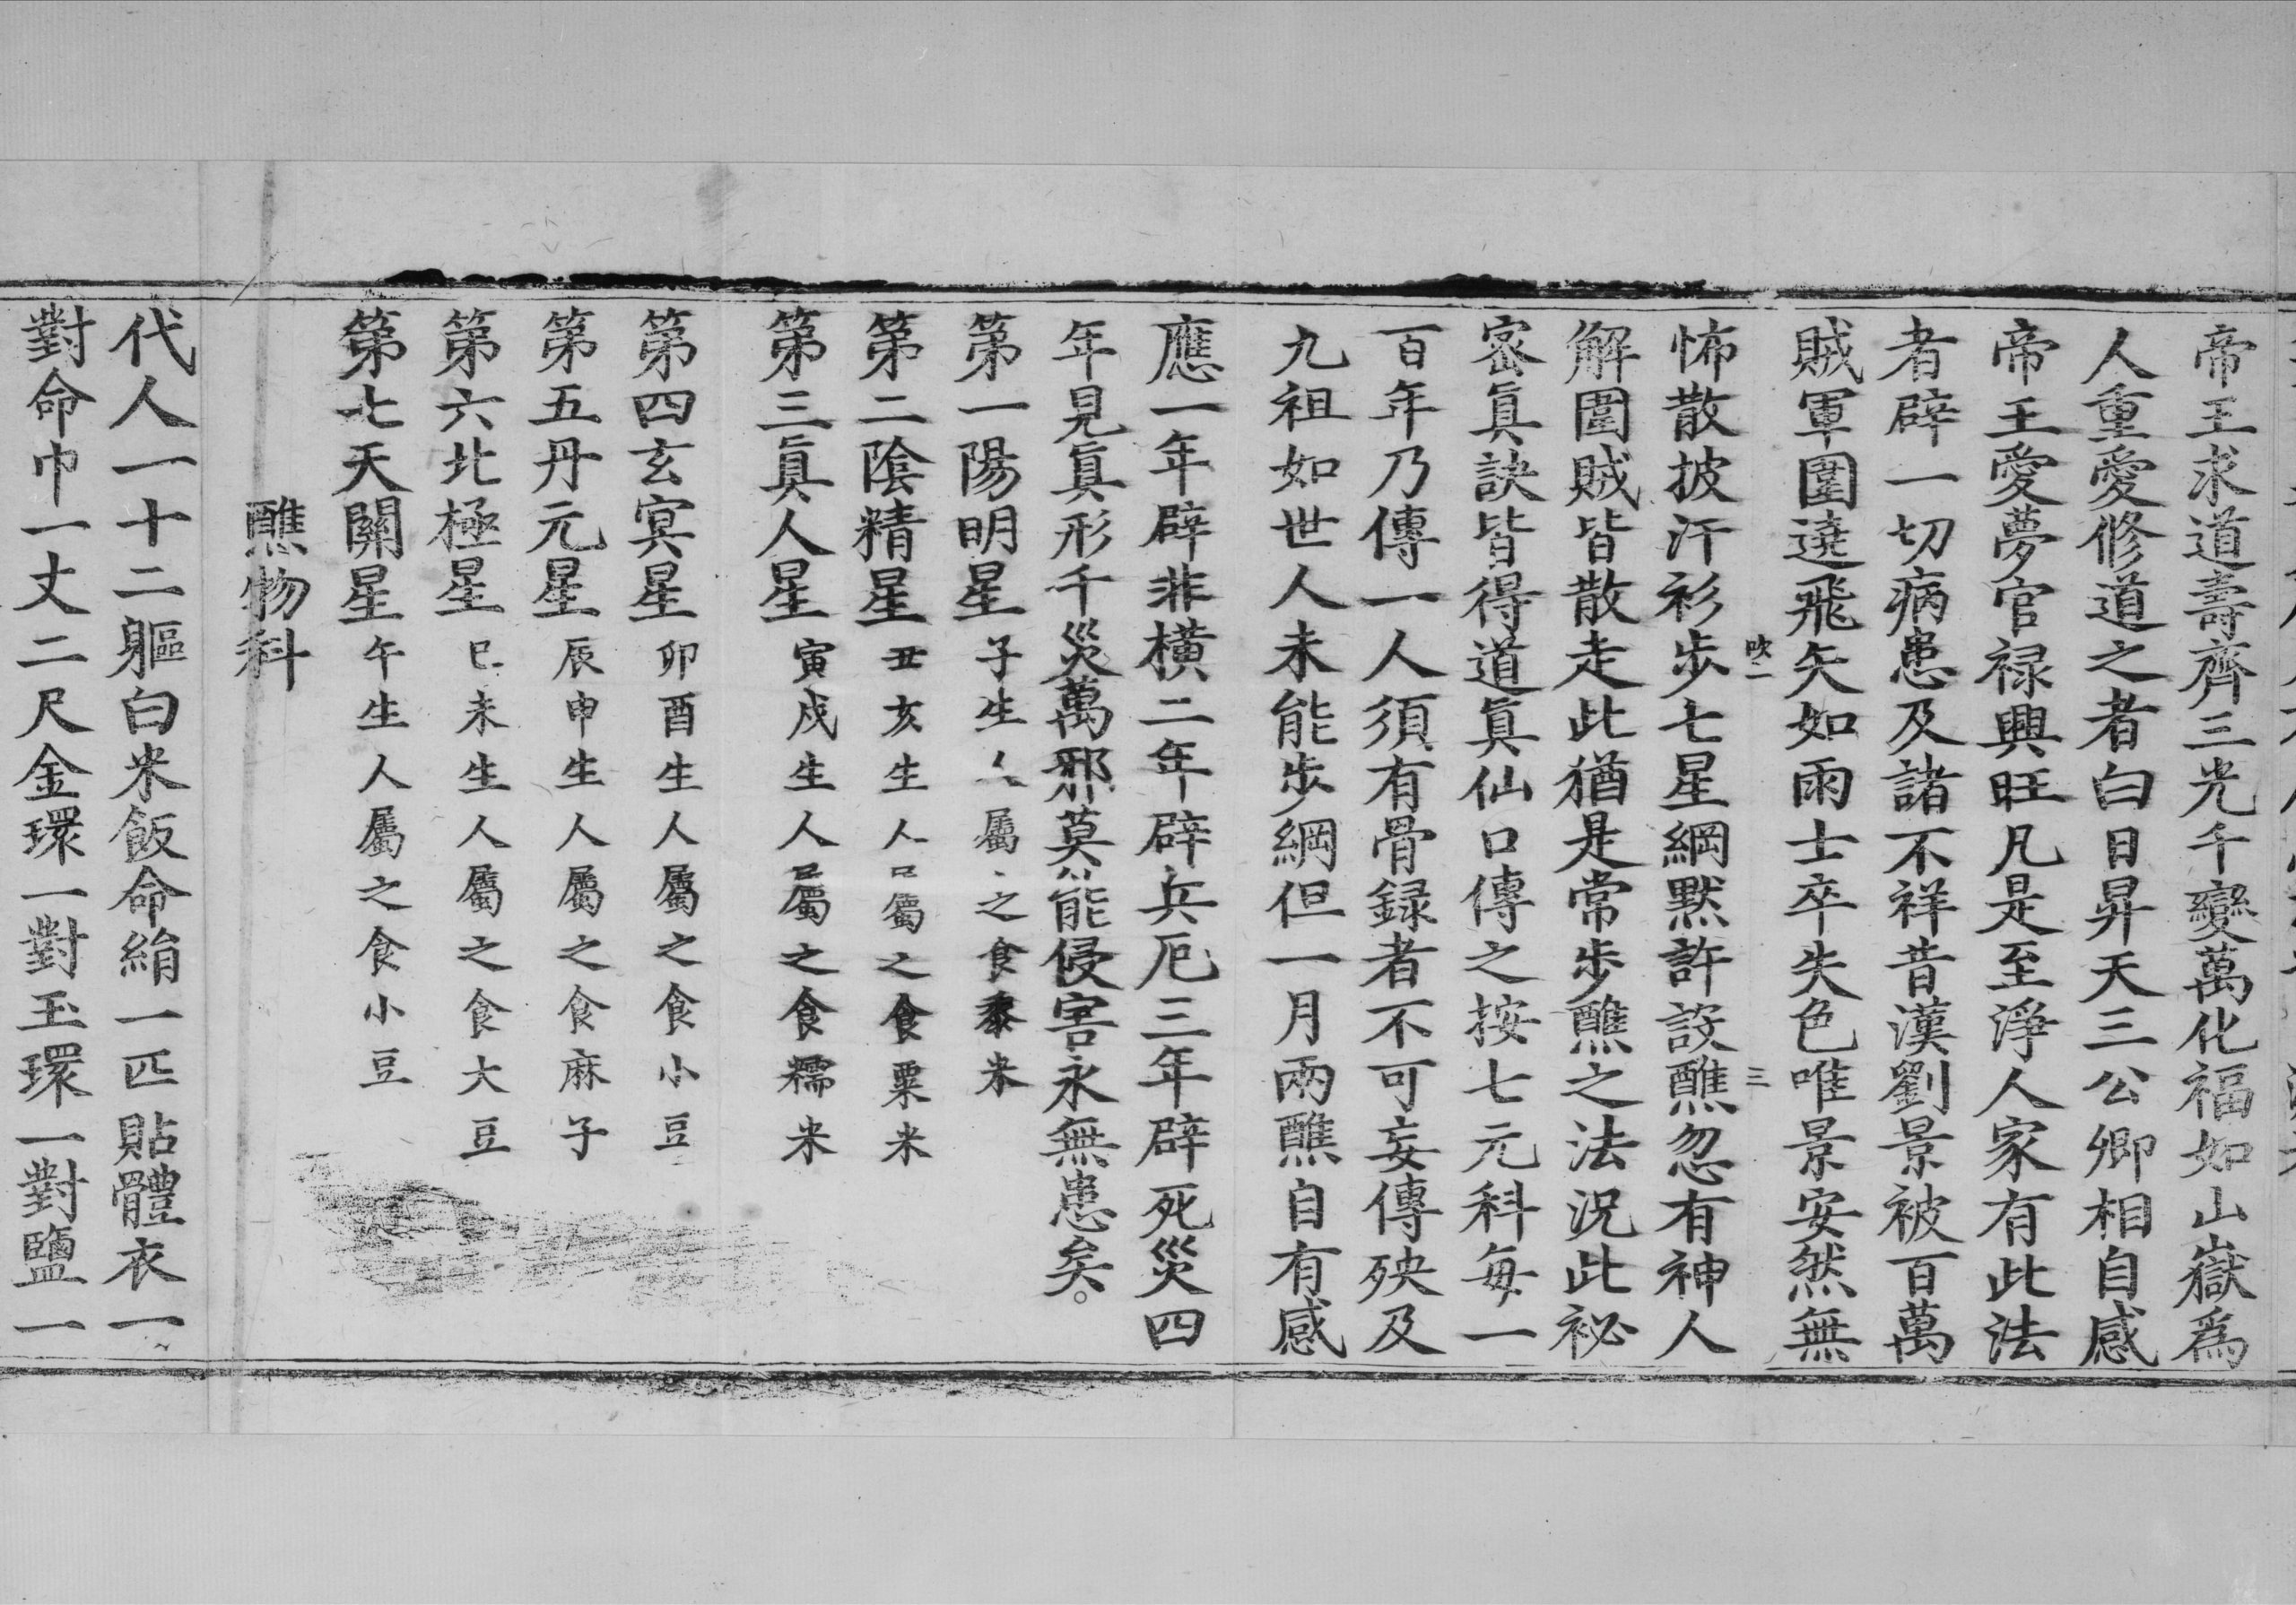 帝王求道壽齊三光千變萬化福如山嶽爲
人重愛修道之者白日昇天三公卿相自感
帝王愛夢官禄興旺凡是至淨人家有此法
者辟一切病患及諸不祥昔漢劉景被百萬
賊軍圍遶飛矢如雨士卒失色唯景安然無
吹二 三
怖散披汗衫步七星綱默許設醮忽有神人
解圍賊皆散走此猶是常步醮之法況此祕
密眞訣皆得道眞仙口傳之按七元科每一
百年乃傳一人須有骨録者不可妄傳殃及
九祖如世人未能步綱但一月兩醮自有感
應一年辟非橫二年辟兵厄三年辟死災四
年見眞形千災萬邪莫能侵害永無患矣。
第一陽明星子生人屬之食黍米
第二陰精星丑亥生人屬之食粟米
第三眞人星寅戍生人屬之食糯米
第四玄冥星卯酉生人屬之食小豆
第五丹元星辰申生人屬之食麻子
第六北極星巳未生人屬之食大豆
第七天關星午生人屬之食小豆
醮物科
代人一十二軀白米飯命絹一匹貼體衣一
對命巾一丈二尺金環一對玉環一對鹽一